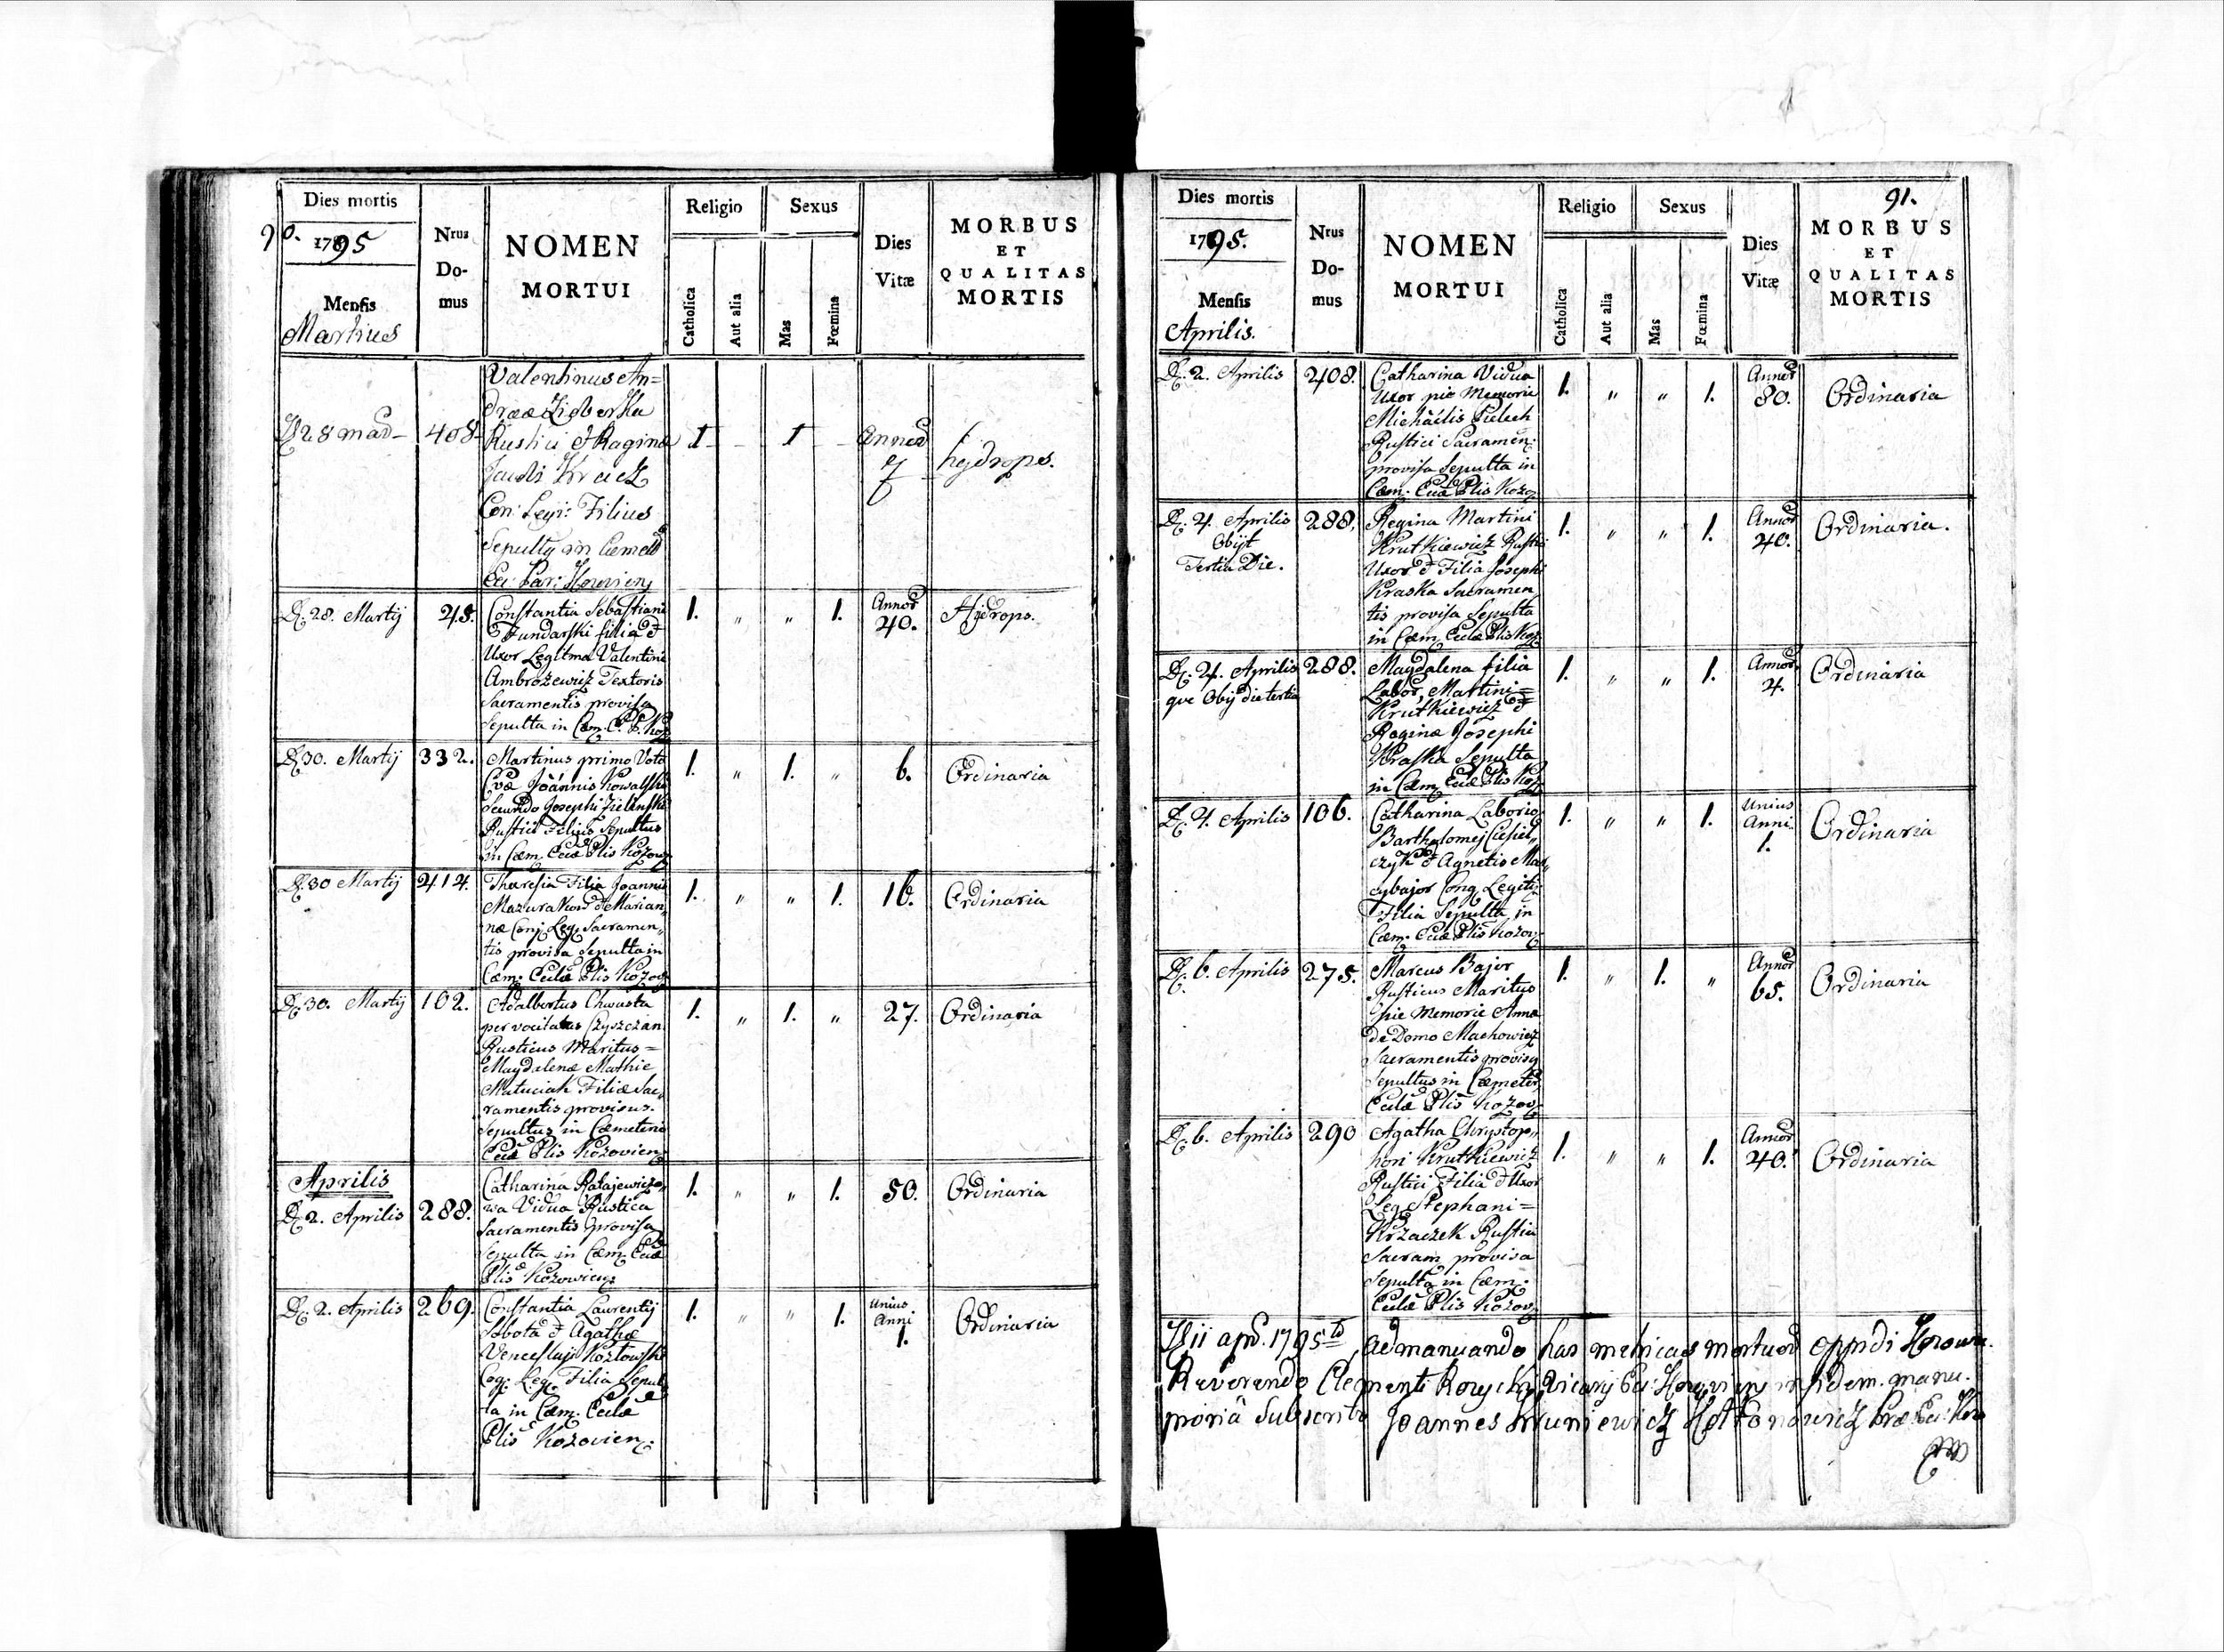 90.
Dies mortis
1795
Mensis
Martius
Nrus
Do-
mus
NOMEN
MORTUI
Religio
Catholica
Aut alia
Sexus
Mas
Fœmina
Dies
Vitæ
MORBUS
ET
QUALITAS
MORTIS
28
408
Valentinus An=
dreæ
Rustici & Regina
Filius
1
1
Annor
7
hydrops.
D. 28. Martij
245.
Constantia Sebastiani
filia &
Uxor Legitma Valentini
Ambrożewicz Textoris
Sacramentis provisa
Sepulta in Cœm.
1. „ „ 1.
Annor
40.
Hydrops.
D. 30. Martij
332.
Martinus primo Voto
Joannis Kowalski
Secundo Josephi Zielinski
Rustici Filius Sepultus
in Cœm. Eccæ Plis Kozow
1. „ 1. „
6.
Ordinaria
D. 30 Martij
414.
Theresia Filia Joannis
Mazurakow & Marian„
næ Conj. Leg. Sacramen„
tis provisa Sepulta in
Cœm. Ecclæ Plis Kozov
1. „ „ 1.
16.
Ordinaria
D. 30. Martij
102.
Adalbertus Chwasta
per vocitatus Czyszczan
Rusticus Maritus =
Magdalenæ Mathie
Matuciak Filiæ Sac„
ramentis provisus.
Sepultus in Cœmeterio
Eccæ Plis Kozovien
1. „ 1. „
27.
Ordinaria
Aprilis
D. 2. Aprilis
288.
Catharina Ratajewiczo„
wa Vidua Rustica
Sacramentis provisa
Sepulta in Cœm. Eccæ
Plis Kozowien
1. „ „ 1.
50.
Ordinaria
D. 2. Aprilis
269.
Constantia Laurentij
Sobota & Agathæ
Venceslaji Kozłowski
Cog. Leg. Filia Sepul
ta in Cœm. Ecclæ
Plis Kozovien.
1. „ „ 1.
Unius
Anni
1.
Ordinaria
91.
Dies mortis
1795.
Mensis
Aprilis.
Nrus
Do-
mus
NOMEN
MORTUI
Religio
Catholica
Aut alia
Sexus
Mas
Fœmina
Dies
Vitæ
MORBUS
ET
QUALITAS
MORTIS
D. 2. Aprilis
408.
Catharina Vidua
Uxor pie Memorie
Michaëlis Pielech
Rustici Sacramen:
provisa Sepulta in
Cœm. Eccæ Plis Kozo
1. „ „ 1.
Annor
80.
Ordinaria
D. 4. Aprilis
Obijt
Tertia Die.
288.
Regina Martini
Krutkiewicz Rustici
Uxor & Filia Josephi
Kraska Sacramen
tis provisa Sepulta
in Cœm. Ecclæ Plis Koz
1. „ „ 1.
Annor
40.
Ordinaria.
D. 4. Aprilis
que Obij die tertia
288.
Magdalena filia
Labor. Martini =
Krutkiewicz &
Reginæ Josephi
Kraska Sepulta
in Cœm. Eccæ Plis Koz
1. „ „ 1.
Annor
4.
Ordinaria
D. 4. Aprilis
106.
Catharina Laborio
Bartholomej Ciesiel„
czyk & Agnetis Mac„
Conj. Legiti:
Filia Sepulta in
Cœm. Eccæ Plis Kozov
1. „ „ 1.
Unius
Anni
1.
Ordinaria
D. 6. Aprilis
275.
Marcus Bajor
Rusticus Maritus
pie Memorie Annæ
de Domo Machowicz
Sacramentis provisus
Sepultus in Cœmeter
Ecclæ Plis Kozov
1. „ 1. „
Annor
65.
Ordinaria
D. 6. Aprilis
290
Agatha Chrystop„
hori Krutkiewicz
Rustici Filia & Uxor
Leg. Stephani =
Krzaczek Rustici
Sacram. provisa
Sepulta in Cœm.
Ecclæ Plis Kozov
1. „ „ 1.
Annor
40.
Ordinaria
11 apr. 1795 has metricas mortuor oppidi
Reverendo Clementi Vicarij in fidem manu
Subscribo Joannes